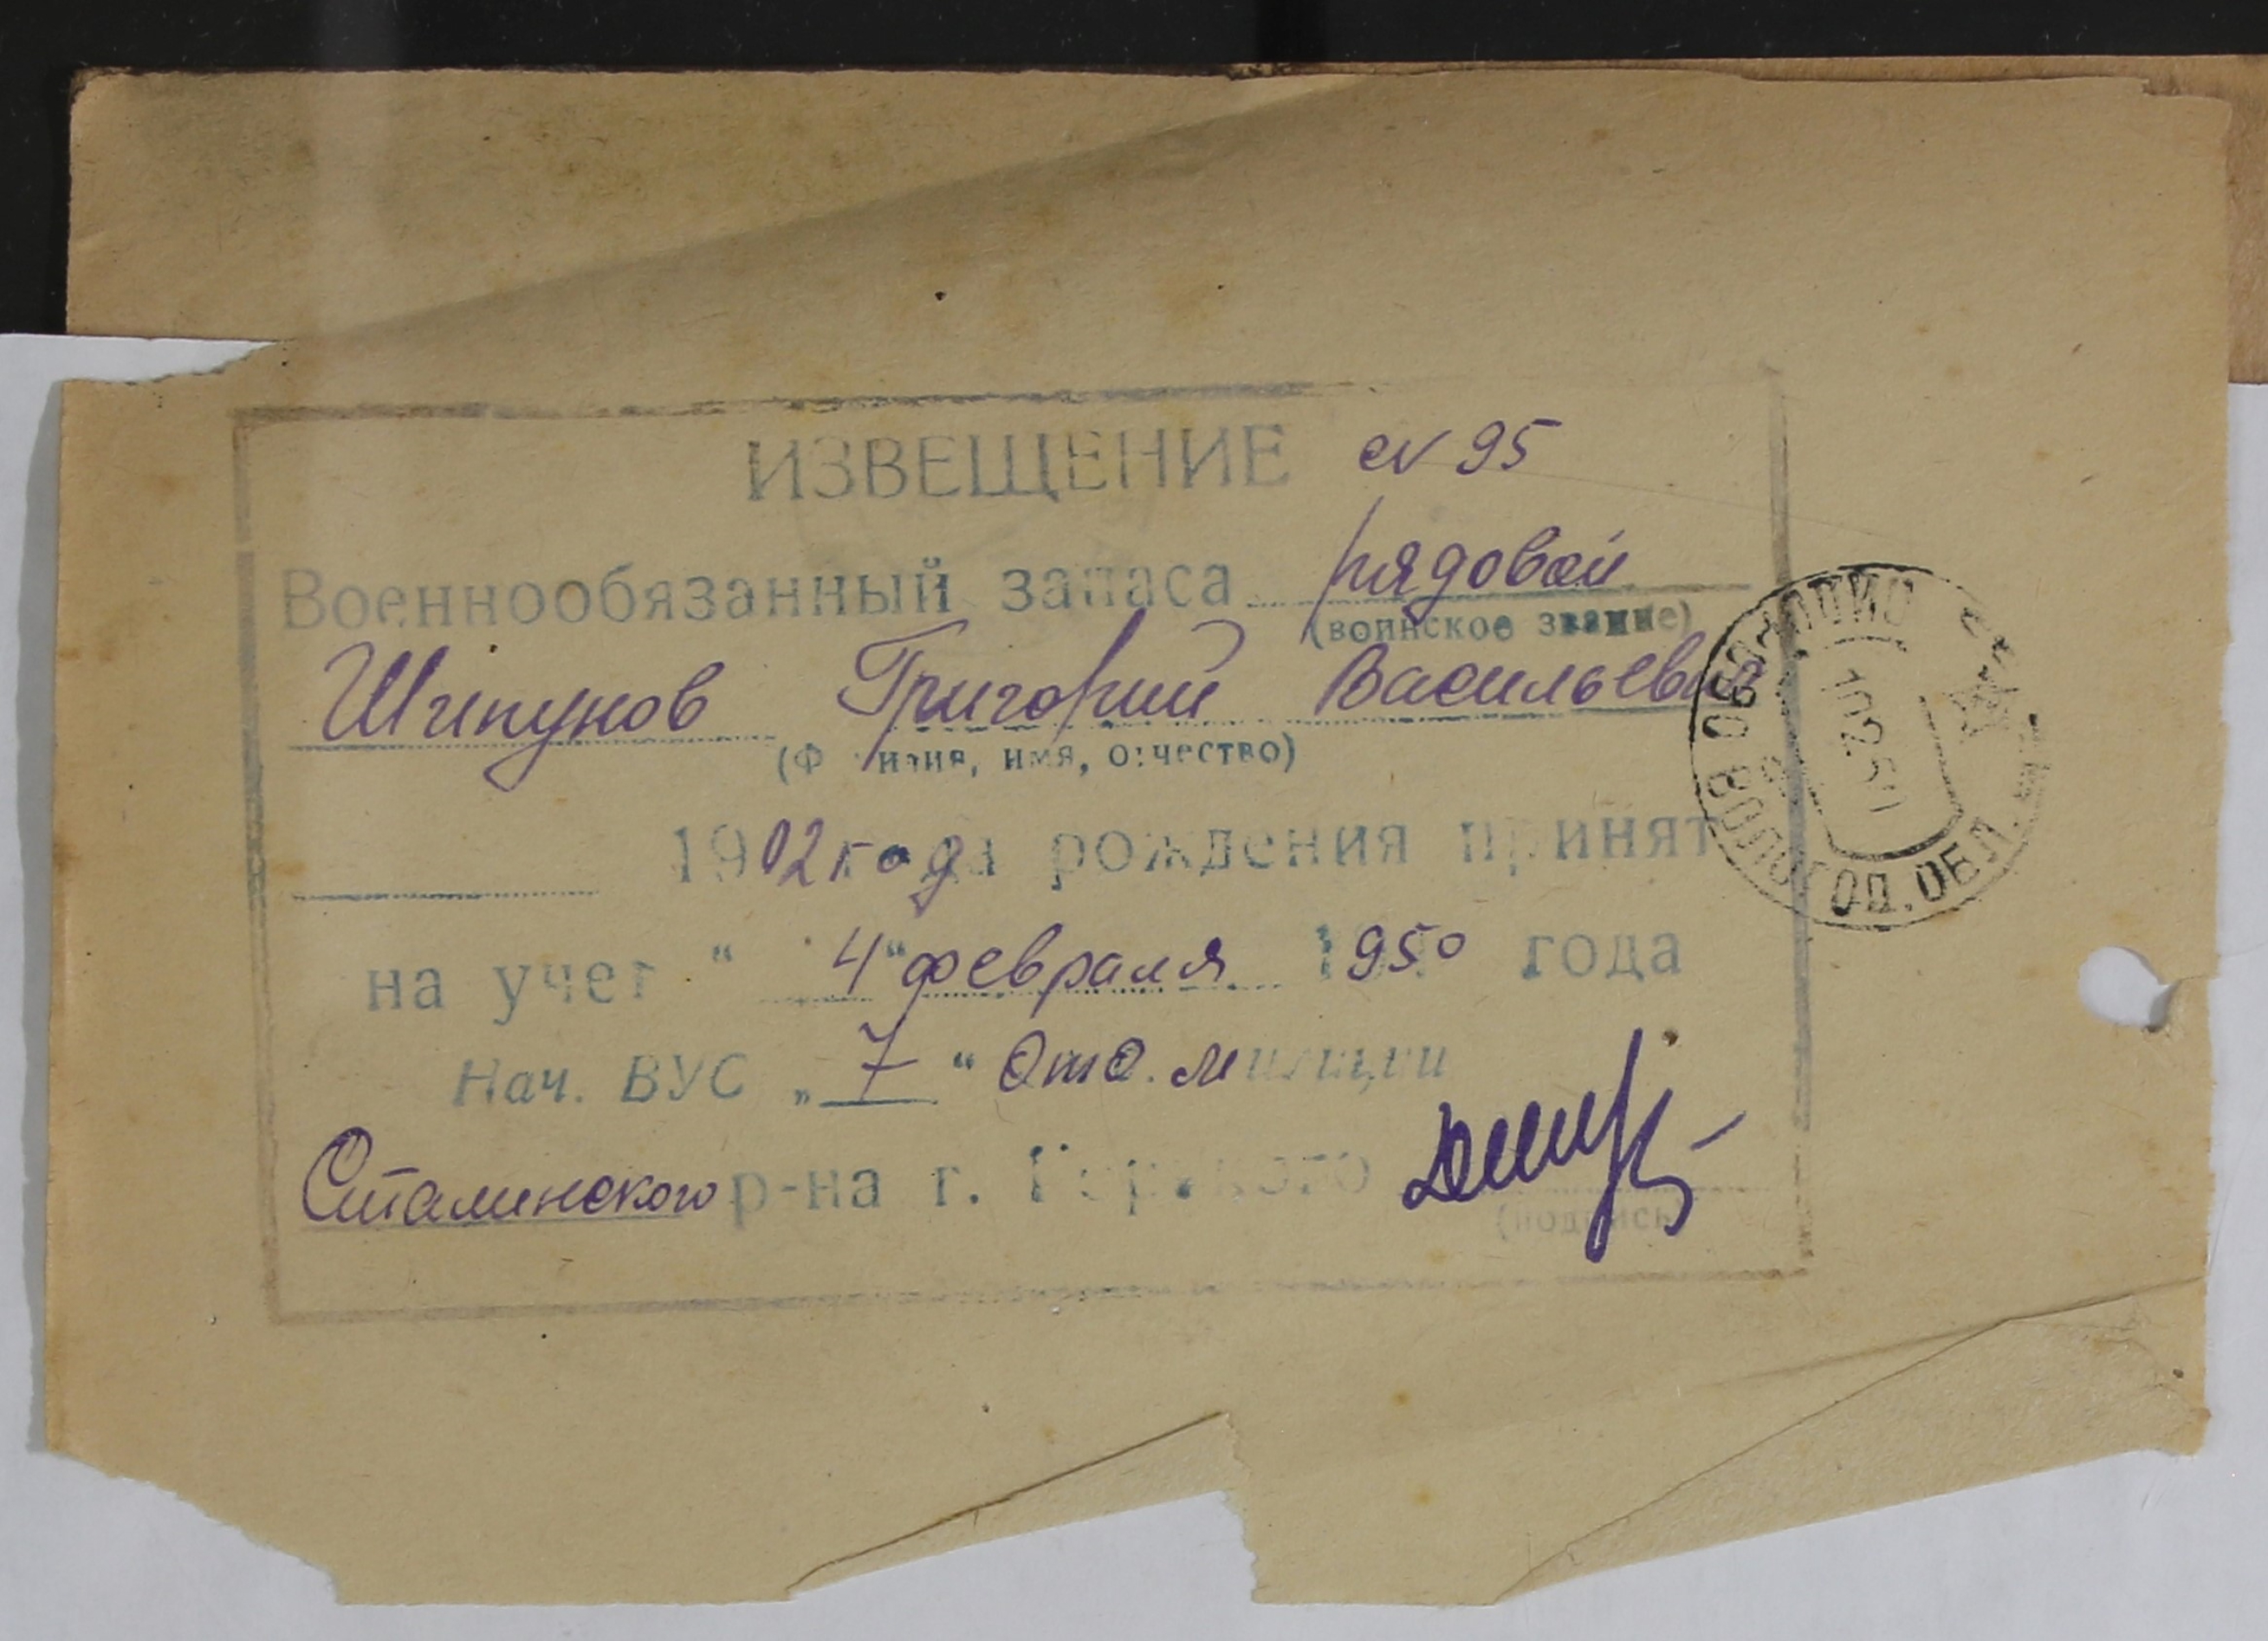 ИЗВЕЩЕНИЕ № 95
Военнообязанный запаса рядовой
(воинское звание)
Шипунов Григорий Васильевич
(Фамилия, имя, отчество)
1902 года рождения принят
на учет " 4 " февраля 1950 года
Нач. ВУС „ 7 " Отд. милиции
Сталинского р-на г. Горького
(подпись)
ВОЛОГОД. ОБЛ.
10.2.50